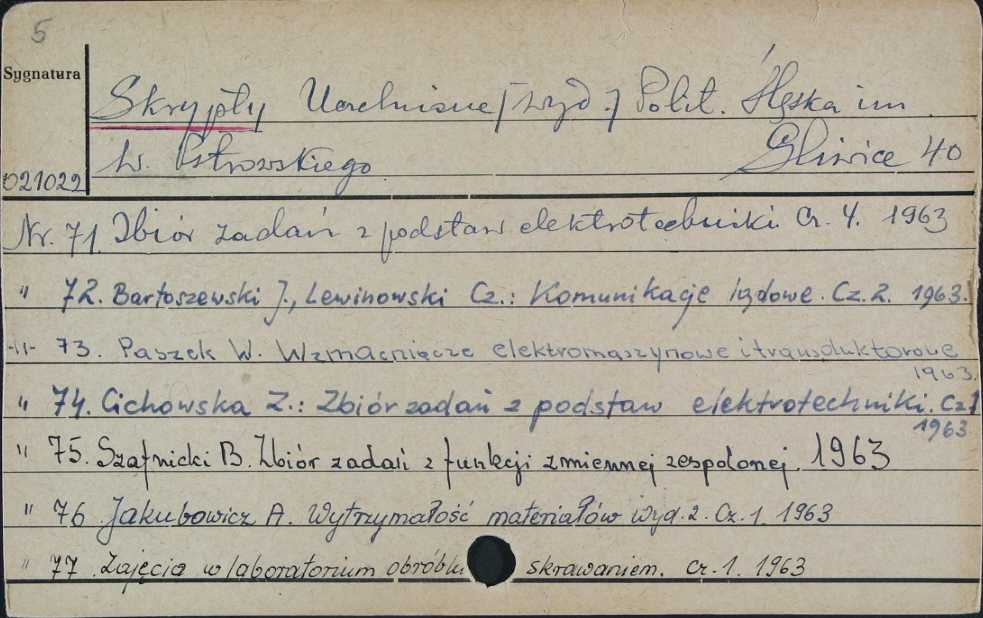 5
Sygnatura
Skrypty Uczelniane [wyd.] Polit. Śląska im
W. Pstrowskiego Gliwice 40
021022
Nr. 71. Zbiór zadań z podstaw elektrotechniki Cz. 4. 1963
" 72. Bartoszewski J., Lewinowski Cz.: Komunikacje lądowe. Cz. 2. 1963.
-"- 73. Paszek W. Wzmacniacze elektromaszynowe i transduktorowe
1963.
" 74. Cichowska Z.: Zbiór zadań z podstaw elektrotechniki. Cz 1
1963
" 75. Szafnicki B. Zbiór zadań z funkcji zmiennej zespolonej. 1963
" 76 Jakubowicz A. Wytrzymałość materiałów Wyd. 2. Cz. 1. 1963
" 77. Zajęcia w laboratorium obróbki skrawaniem. cz. 1. 1963